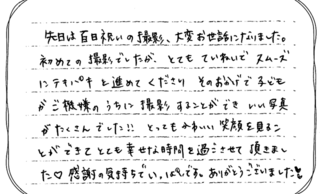 先日は百日祝いの撮影、大変お世話になりました。
初めての撮影でしたが、とてもていねいでスムーズ
にテキパキと進めてくださり そのおかげで子ども
がご機嫌のうちに撮影することができ いい写真
がたくさんでした!! とってもかわいい笑顔を見るこ
とができてとても幸せな時間を過ごさせて頂きまし
た♡ 感謝の気持ちでいっぱいです。ありがとうございました